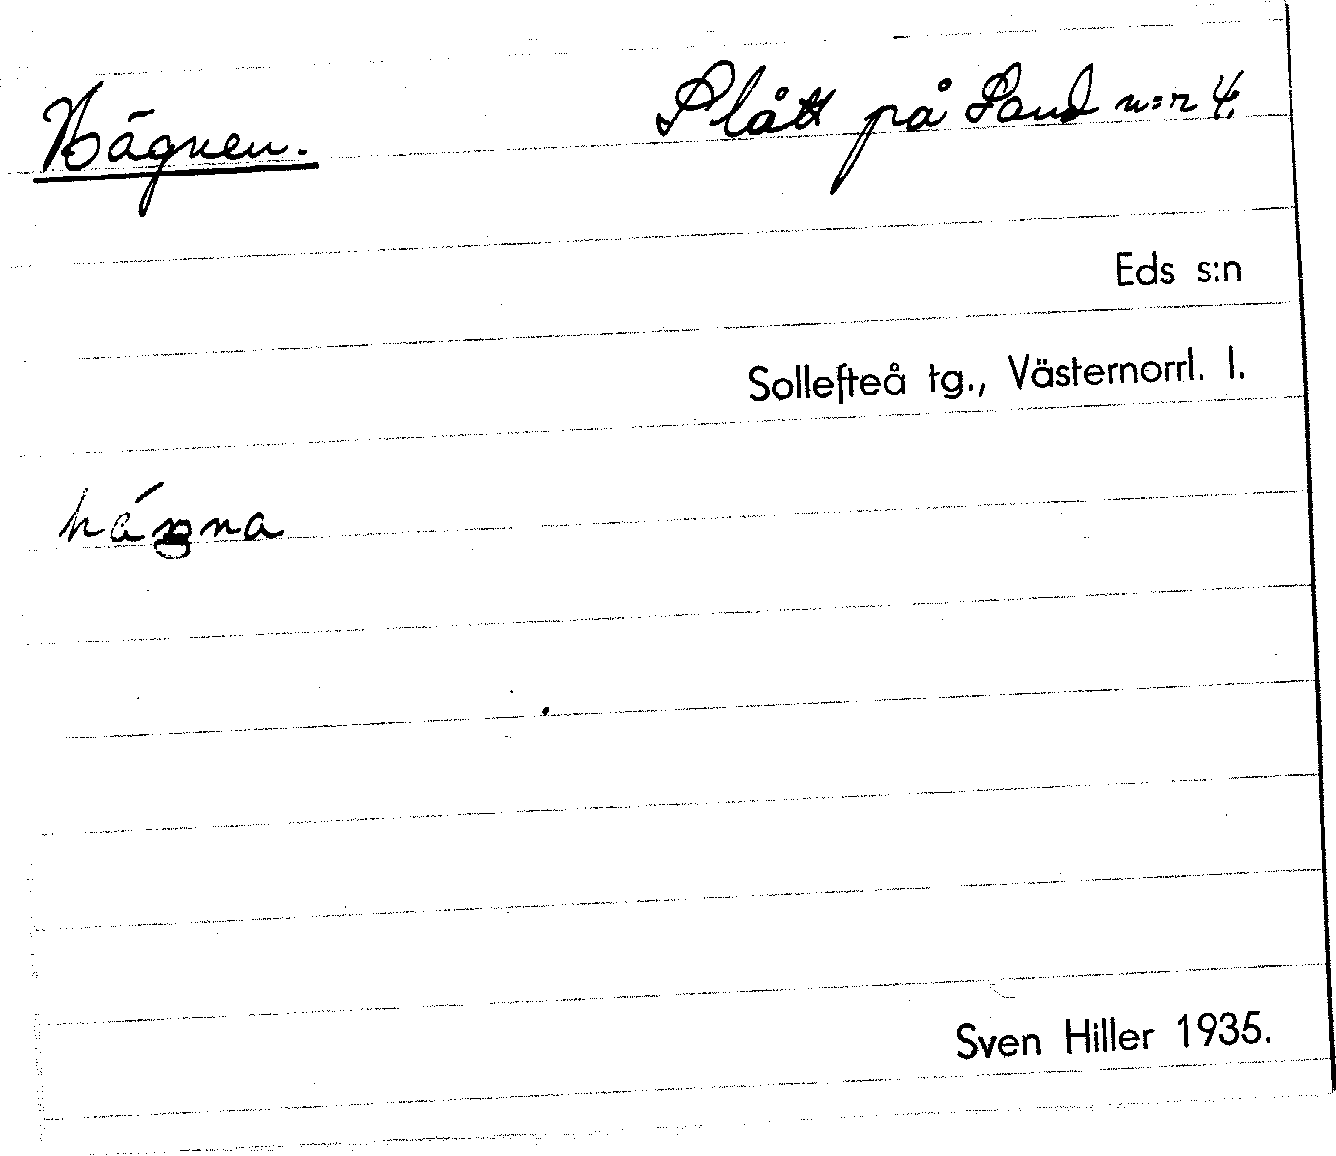 Hägnen. Slått på Sand n:r 4.
Eds s:n
Sollefteå tg., Västernorrl. l.
Sven Hiller 1935.